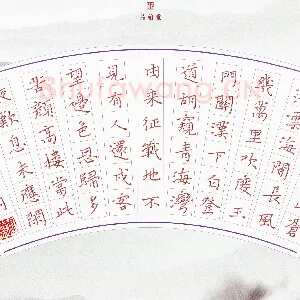 山蒼
茫雲海間長風
幾萬里吹度玉
門關漢下白登
道胡窺青海灣
由来征戰地不
見有人還戍客
望邊色思歸多
苦顏高樓當此
夜歎息未應閑
Shufawang.CN